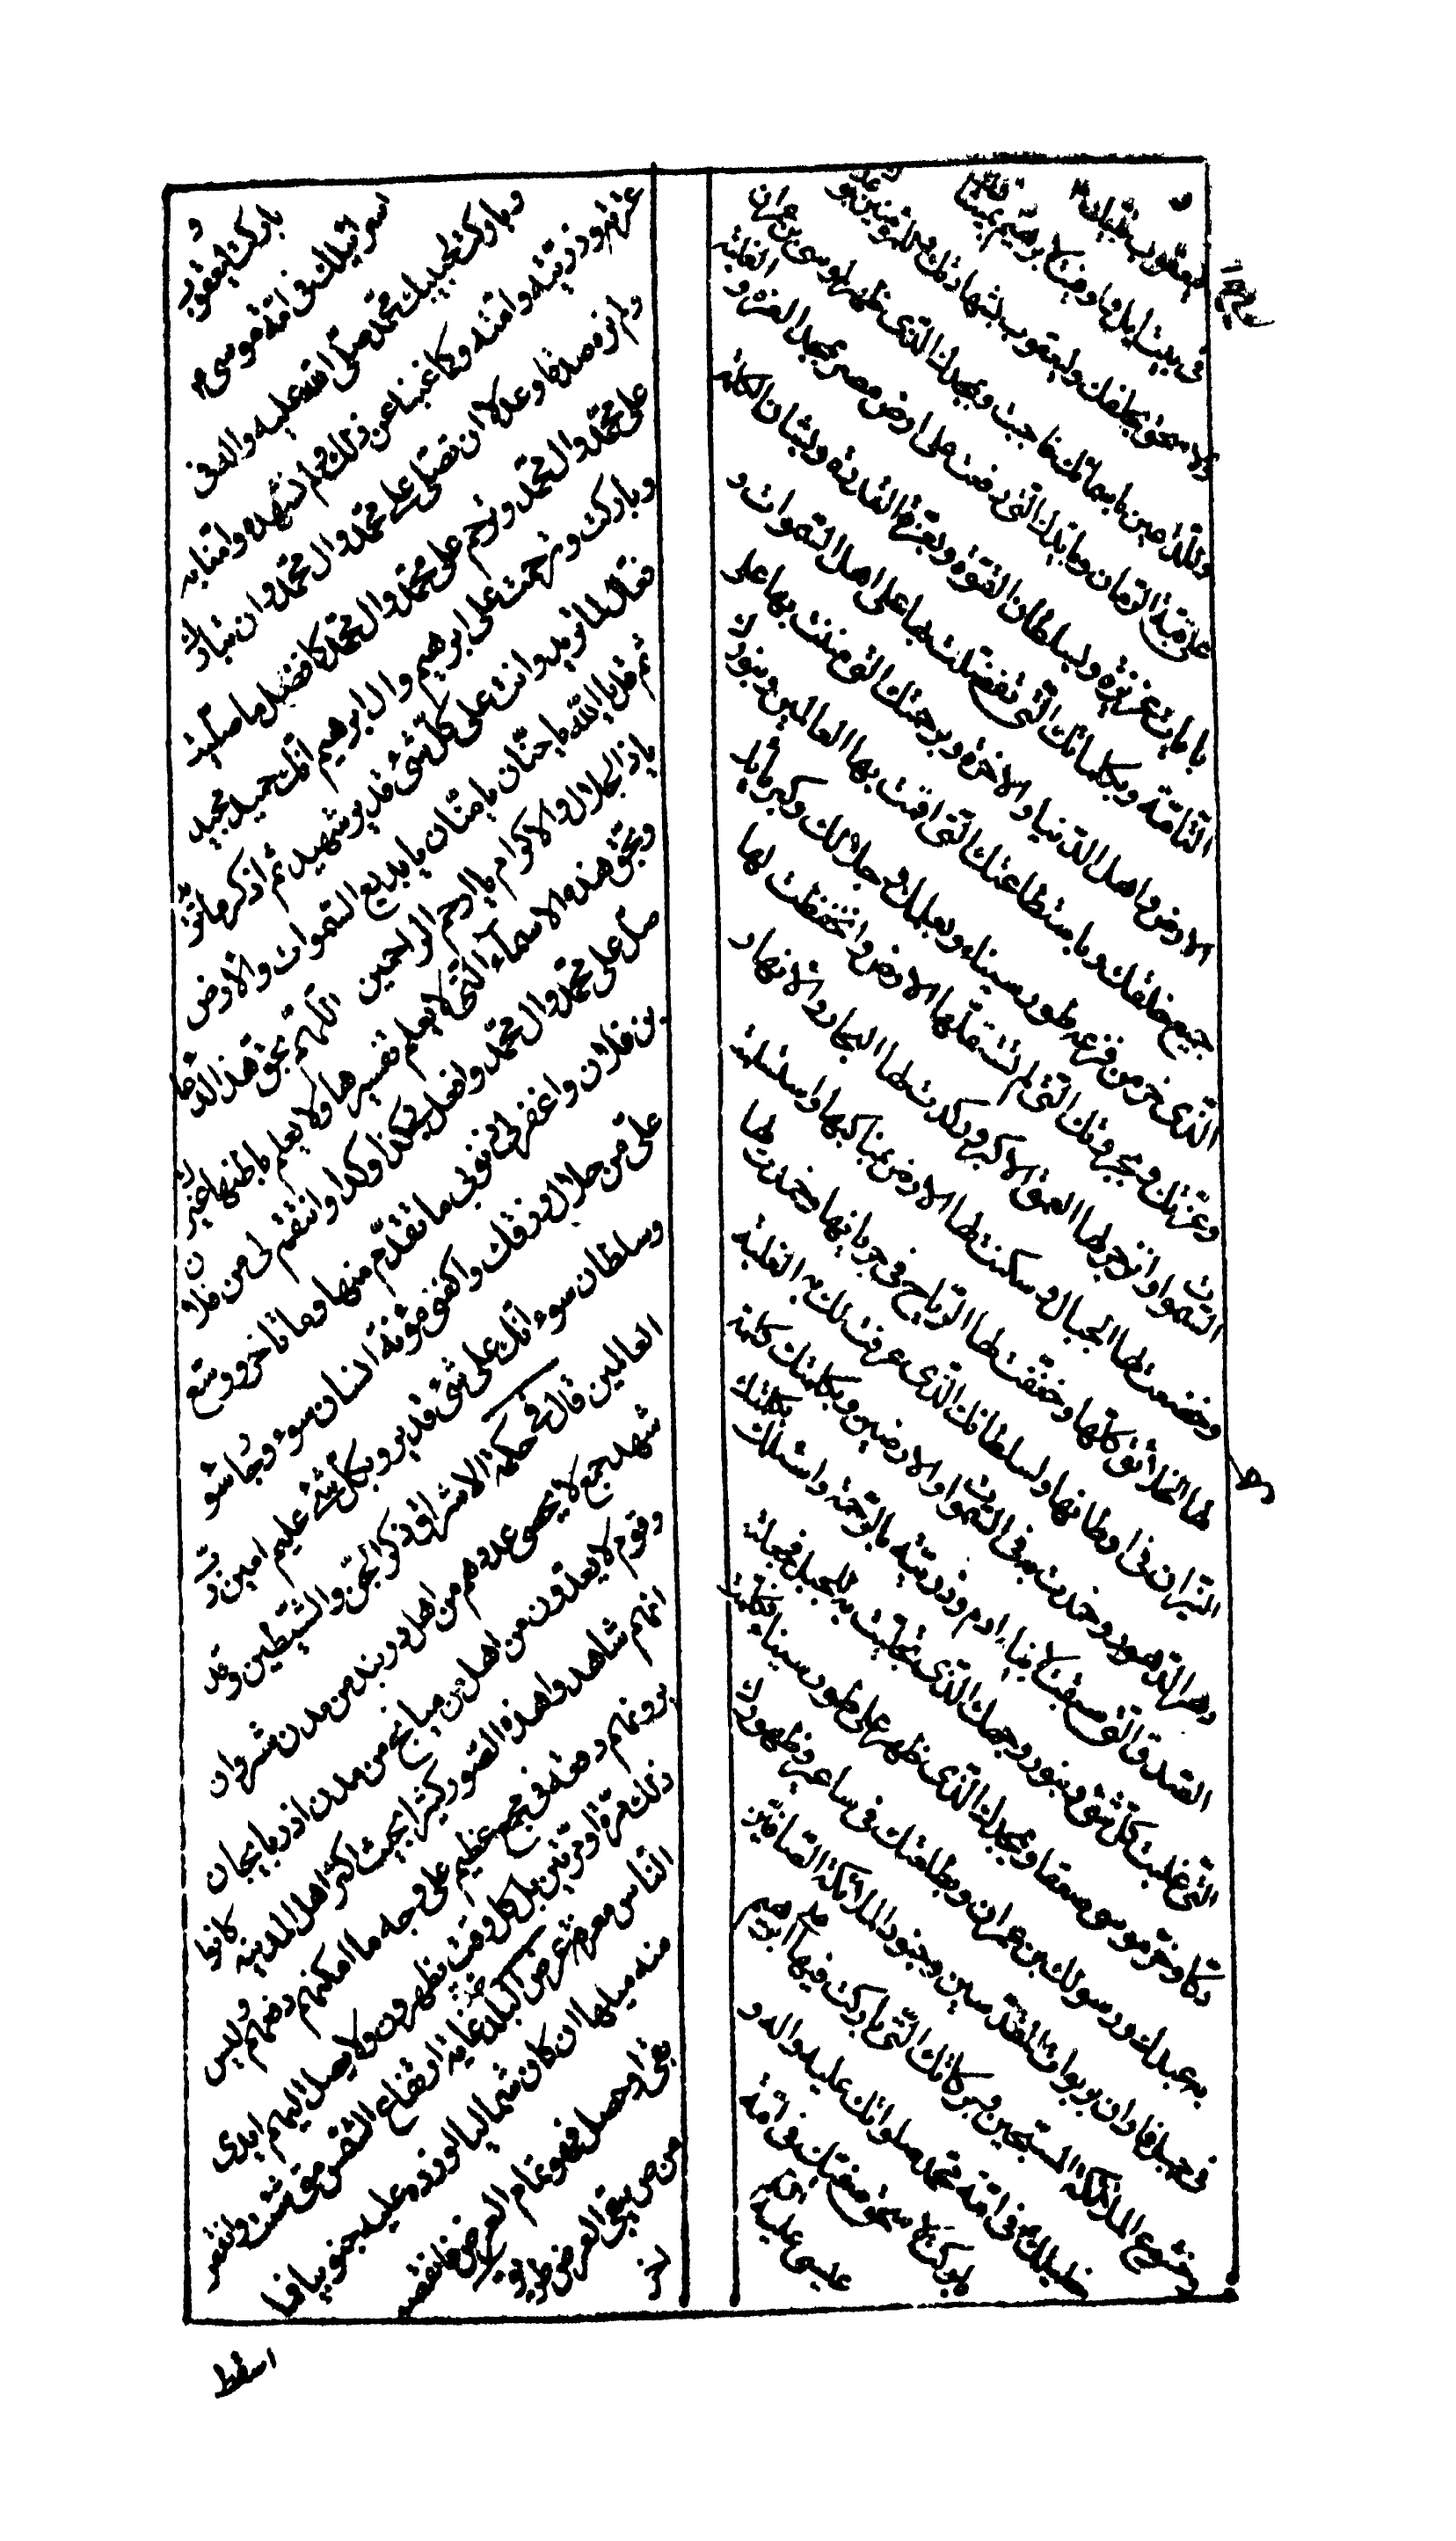 و
ليعقوب نبيك
في بيت ايل و اوفيت لابرهيم بميثاقك
ولاسحق بحلفك وليعقوب بشهادتك وللمؤمنين بوعدك
وللداعين باسمائك فاجبت وبمجدك الذي ظهر لموسى بن عمران
على قبة الزمان وبايدك التي رفعت على ارض مصر بمجد العزة و الغلبة
بايات عزيزة وبسلطان القوة وبعزة القدرة وبشان الكلمة
التامة وبكلماتك التي تفضلت بها على اهل السموات و
الارض واهل الدنيا والاخرة وبرحمتك التي مننت بها على
جميع خلقك وباستطاعتك التي اقمت بها العالمين وبنورك
الذي خر من فزعه طور سيناء وبعلمك و جلالك وكبريائك
وعزتك وجبروتك التي لم تستقلها الارض وانخفضت لها
السموات وانزجر لها العمق الاكبر وركدت لها البحار والانهار
وخضعت لها الجبال وسكنت لها الارض بمناكبها واستسلمت
لها الخلائق كلها وخفقت لها الرياح في جريانها وخمدت لها
النيران في اوطانها وبسلطانك الذي عرفت لك به الغلبة
دهر الدهور وحمدت به في السموات والارضين وبكلمتك كلمة
الصدق التي سبقت لابينا ادم وذريته بالرحمة واسئلك بكلمتك
التي غلبت كل شئ وبنور وجهك الذي تجليت به للجبل فجعلته
دكا وخر موسى صعقا وبمجدك الذي ظهر على طور سيناء فكلمت
به عبدك ورسولك بن عمران وبطلعتك في ساعير وظهورك
في جبل فاران بربوات المقدسين وجنود الملائكة الصافين
وخشوع الملائكة المسبحين وببركاتك التي باركت فيها على ابرهيم
خليلك في امة محمد صلواتك عليه واله و
باركت لاسحق صفيك في امة
عيسى عليه
باركت ليعقوب
اسرائيلك في امة موسى
وباركت لحبيبك محمد صلى الله عليه واله في
عترته وذريته وامته وكما غبنا عن ذلك ولم نشهده وامنا به
ولم نره صدقا وعدلا ان تصلي على محمد وال محمد وان تبارك
على محمد وال محمد وترحم على محمد وال محمد كافضل ما صليت
وباركت وترحمت على ابرهيم وال ابرهيم انك حميد مجيد
فعال لما تريد وانت على كل شئ قدير شهيد ثم اذكر ما تريد
ثم قل يا الله يا حنان يا منان يا بديع السموات والارض
يا ذا الجلال والاكرام يا ارحم الراحمين اللهم بحق هذا الدعا
وبحق هذه الاسماء التي لا يعلم تفسيرها ولا يعلم باطنها غيرك
صل على محمد وال محمد وافعل بي كذا وكذا وانتقم لي من فلان
بن فلان واغفر لي ذنوبي ما تقدم منها وما تاخر ووسع
علي من حلال رزقك واكفني مؤنة انسان سوء وجار سوء
وسلطان سوء انك على شئ قدير وبكل شئ عليم امين رب
العالمين قال في حكمة الاشراق ذكر الجن والشيطين وقد
شهد جمع لا يحصى عددهم من اهل دربند من مدن شروان
وقوم لا يعدون من اهل ميانج من مدن اذربايجان
انهم شاهدوا هذه الصور كثيرا بحيث اكثر اهل المدينة كانوا
يرونهم دفعة في مجمع عظيم على وجه ما امكنهم دفعهم وليس
ذلك مرة او مرتين بل كل وقت يظهرون ولا يصل اليهم ايدي
الناس معرفة عرض البلد غاية ارتفاع الشمس متى شئت وانقص
منه ميلها ان كان شماليا او زده عليه جنوبيا فما
بقي او حصل فهو تمام العرض فانقصه
من ص يبقى العرض طريق
اخر
اسقط